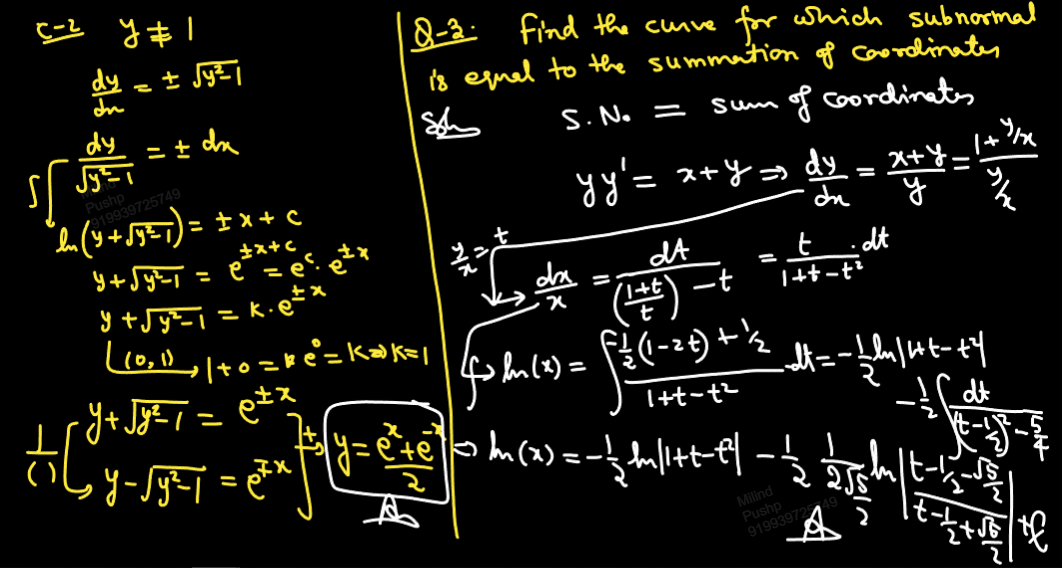 C-2 y ≠ 1
dy/dx = ± √y²-1
∫ dy/√y²-1 = ± dx
ln(y+√y²-1) = ± x + c
y+√y²-1 = e^(±x+c) = e^c · e^(±x)
y+√y²-1 = k·e^(±x)
(0,1) → 1+0 = k e⁰ = k ⇒ k=1
y+√y²-1 = e^(±x)
1/( )
y-√y²-1 = e^(∓x)
+ → y = (e^x + e^-x)/2
A
Q-3: Find the curve for which subnormal
is equal to the summation of coordinates
Soln S.N. = sum of coordinates
yy' = x+y ⇒ dy/dx = (x+y)/y = (1+y/x)/(y/x)
y/x = t
dx/x = dt/(((1+t)/t) - t) = t/(1+t-t²) · dt
ln(x) = ∫ (-½(1-2t) + ½)/(1+t-t²) dt = -½ ln|1+t-t²|
-½ ∫ dt/((t-½)² - 5/4)
⇒ ln(x) = -½ ln|1+t-t²| - ½ 1/(2√5/2) ln|(t-½-√5/2)/(t-½+√5/2)| + C
A
Milind
Pushp
919939725749
Milind
Pushp
919939725749